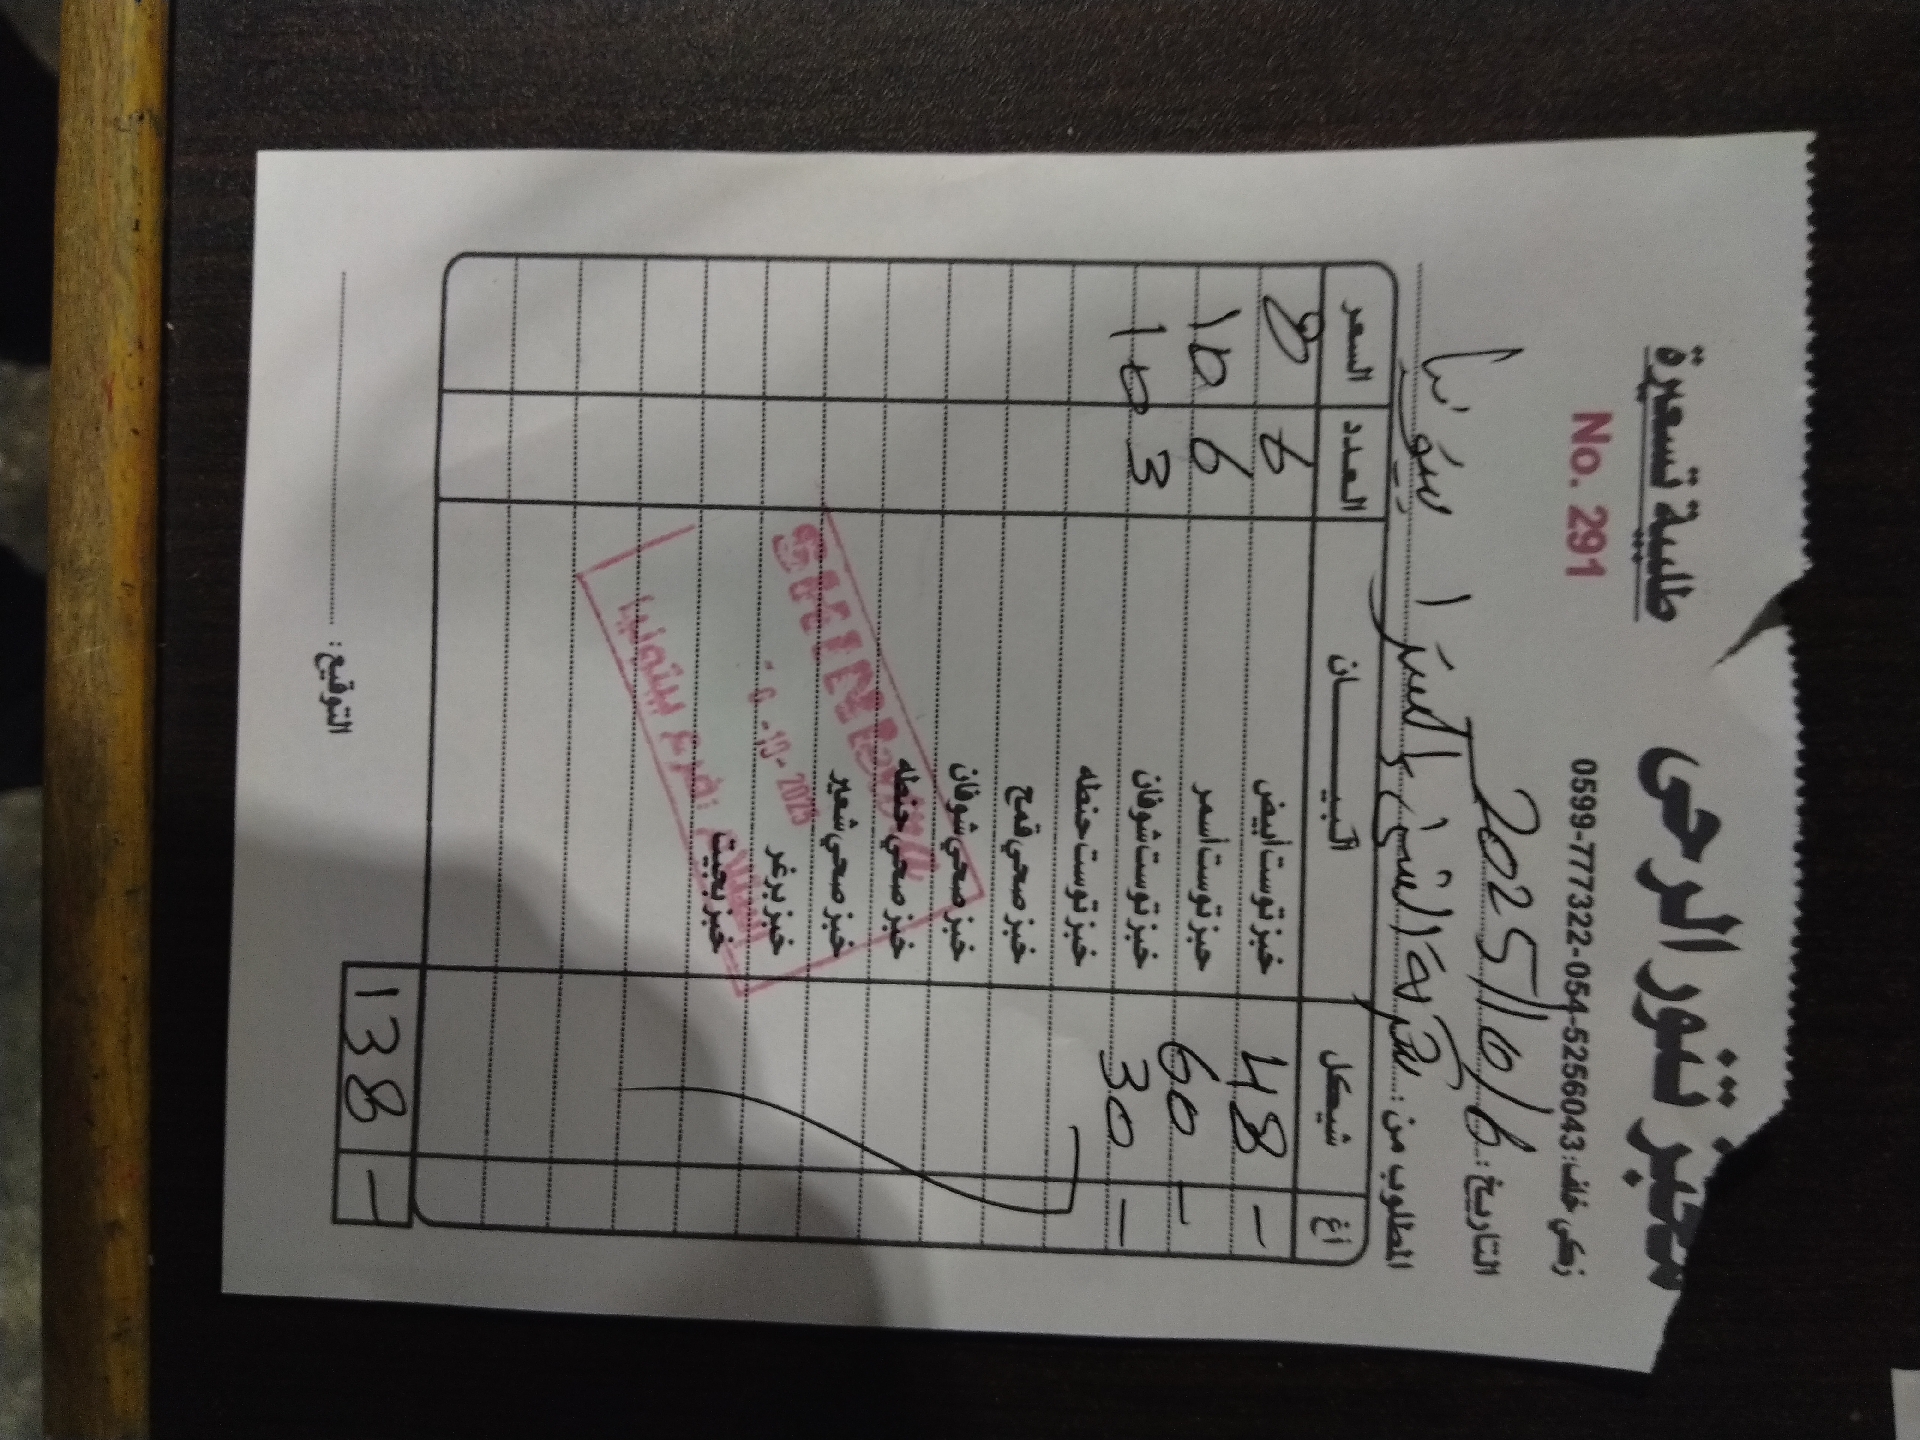 مخبز تنور الرحى
طلبية تسعيرة
زكي خلف: 0599-777322-054-5256043
No. 291
التاريخ: 2025/10/6
المطلوب من: شركة الشني اكسترا بيتونيا
أغ شيكل البيــــــان العدد السعر
- 48 خبز توست ابيض 6 8
- 60 خبز توست اسمر 6 10
- 30 خبز توست شوفان 3 10
خبز توست حنطه
خبز صحي قمح
خبز صحي شوفان
خبز صحي حنطه
خبز صحي شعير
خبز برغر
خبز بجيت
- 138
-10-2025
فرع بيتونيا
التوقيع: